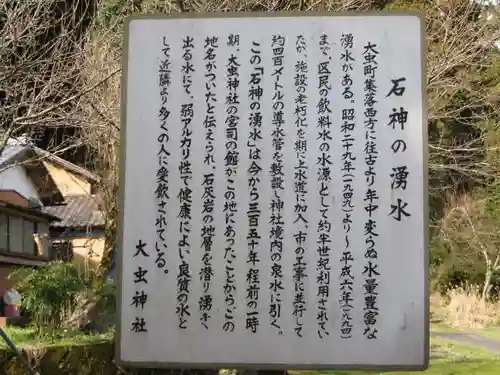 石神の湧水
大虫町集落西方に往古より年中変らぬ水量豊富な
湧水がある。昭和二十九年(一九四九)より〜平成六年(一九九四)
まで、区民の飲料水の水源として約半世紀利用されてい
たが、施設の老朽化を期に上水道に加入、市の工事に並行して
約四百メートルの導水管を敷設し神社境内の泉水に引く。
この「石神の湧水」は今から三百五十年程前の一時
期、大虫神社の宮司の館がこの地にあったことから、この
地名がついたと伝えられ、石灰岩の地層を潜り湧き
出る水にて、弱アルカリ性で健康によい良質の水と
して近隣より多くの人に愛飲されている。
大虫神社